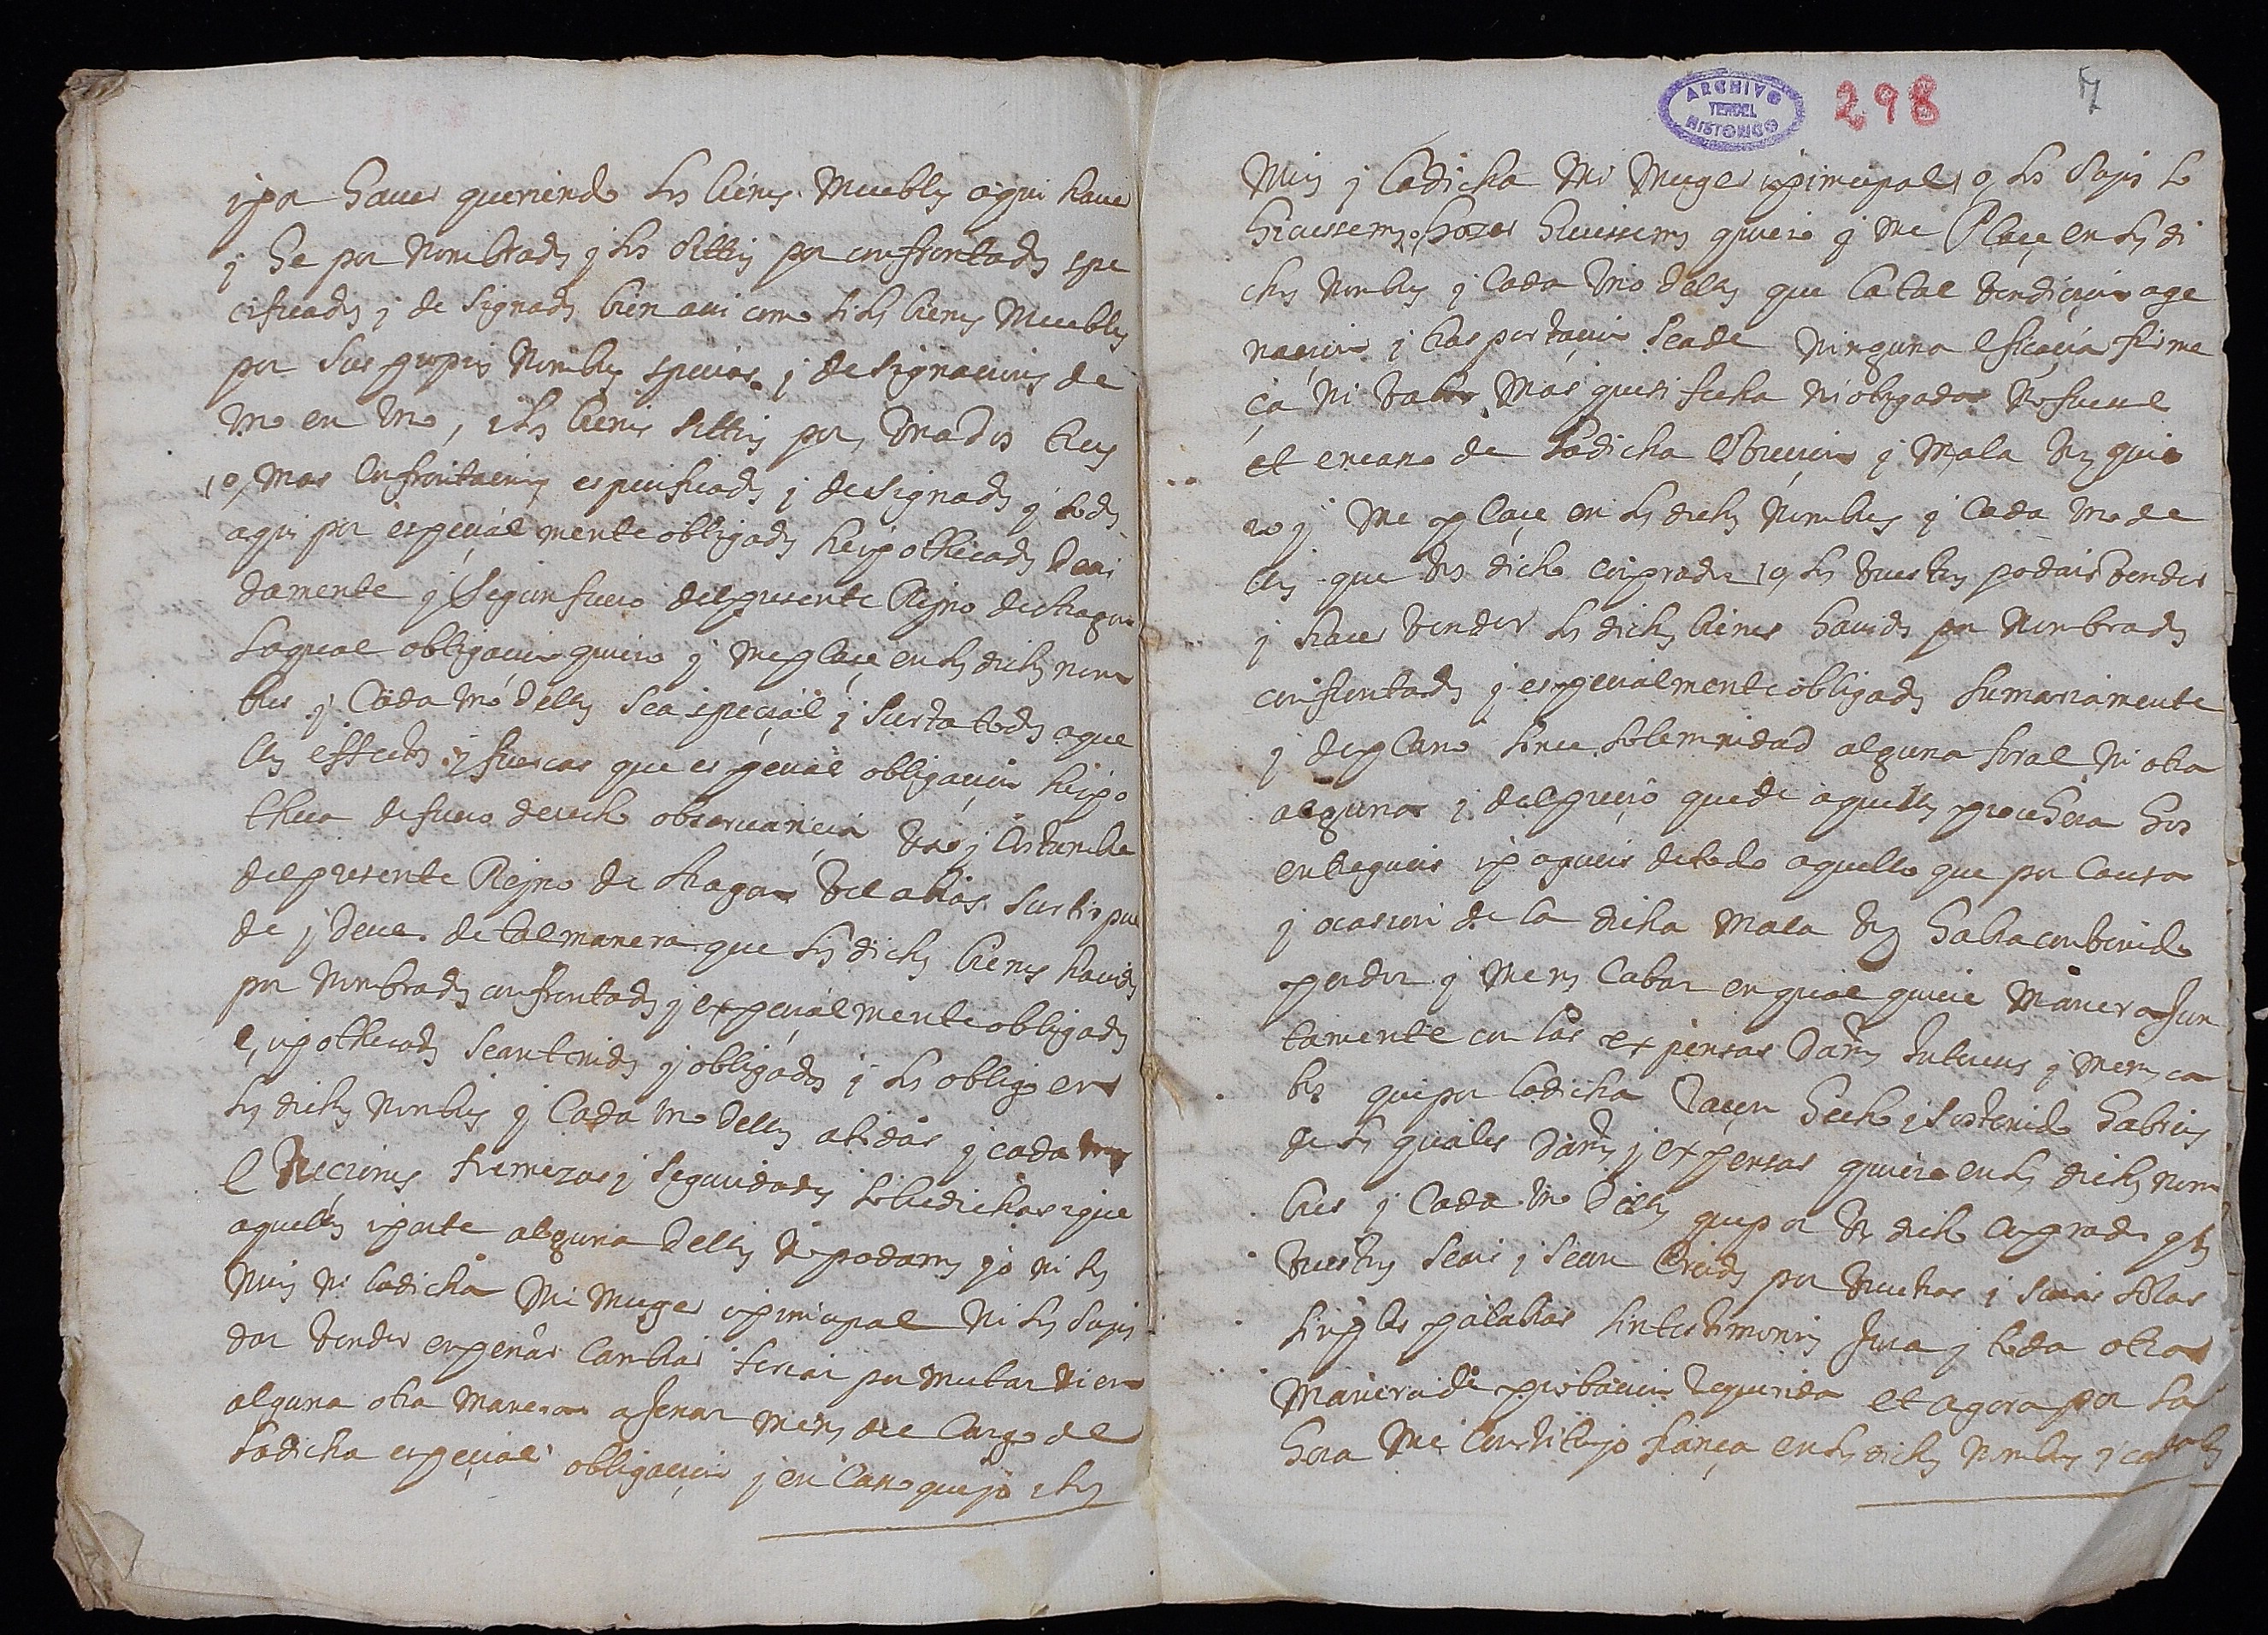 i por haver queriendo los bienes muebles aqui haver
j he por nombrados j los sittios por confrontados spe
cificados j designados bien assi como si los bienes muebles
por sus propios nombres specias j designaciones de
uno en uno, i los bienes sittios por, una dos tres
o, mas confrontaciones especificados j designados j todos
aqui por especialmente obligados heipothecados devi
damente j segun fuero del presente Rejno de Aragon
la qual obligacion quiero j me place en los dichos nom
bres j cada uno dellos sea special j surta todos aque
llos effectos j fuercas que especial obligacion heipo
theca de fuero derecho observancia uso j costumbre
del presente Rejno de Aragon vel alias surtir pue
de j deve. de tal manera que los dichos bienes havidos
por nombrados confrontados j expecialmente obligados
e, ipothecados sean tenidos j obligados j los obligo en
los dichos nombres j cada uno dellos a todas j cada unas
evicciones firmezas j seguridades sobredichas i que
aquellos i parte alguna dellos no podamos jo ni los
mios ni la dicha mi muger i principal ni los sujos
dar vender enpeñar cambiar feriar permutar ni en
alguna otra manera ajenar menos del cargo de
la dicha especial obligacion j en caso que jo i los
ARCHIVO
TERUEL
HISTORICO
298
7
mios j la dicha mi muger i principal, o, los sujos lo
hiciessemos, o, hazer hiciessemos quiero j me place en los di
chos nombres j cada uno dellos que la tal vendicion age
nacion j trasportacion sea de ninguna eficacia firme
ça ni valor mas que si fecha ni obligada no fuesse
et en caso de la dicha eviccion j mala voz quie
ro j me place en los dichos nombres j cada uno de
llos que vos dicho conprador, o, los vuestros podais vender
j hacer vender los dichos bienes havidos por nombrados
confrontados j especialmente obligados sumariamente
j de plano sines solemnidad alguna foral ni otra
alguna j del precio que de aquellos procehera hos
entregueis i pagueis de todo aquello que por causa
j ocasion de la dicha mala voz habra convenido
perder j menos cabar en qual quiere manera jun
tamente con las expensas daños intereses j menosca
bos que por la dicha raçon hecho j sostenido habreis
de los quales daños j expensas quiero en los dichos nom
bres j cada uno dellos que por vos dicho conprador j los
vuestros seais j sean creidos por vuestras j suias solas
sinples palabras sin testimonios jura j toda otra
manera de probacion requerida et agora por la
hora me constitujo fiança en los dichos nombres j cada